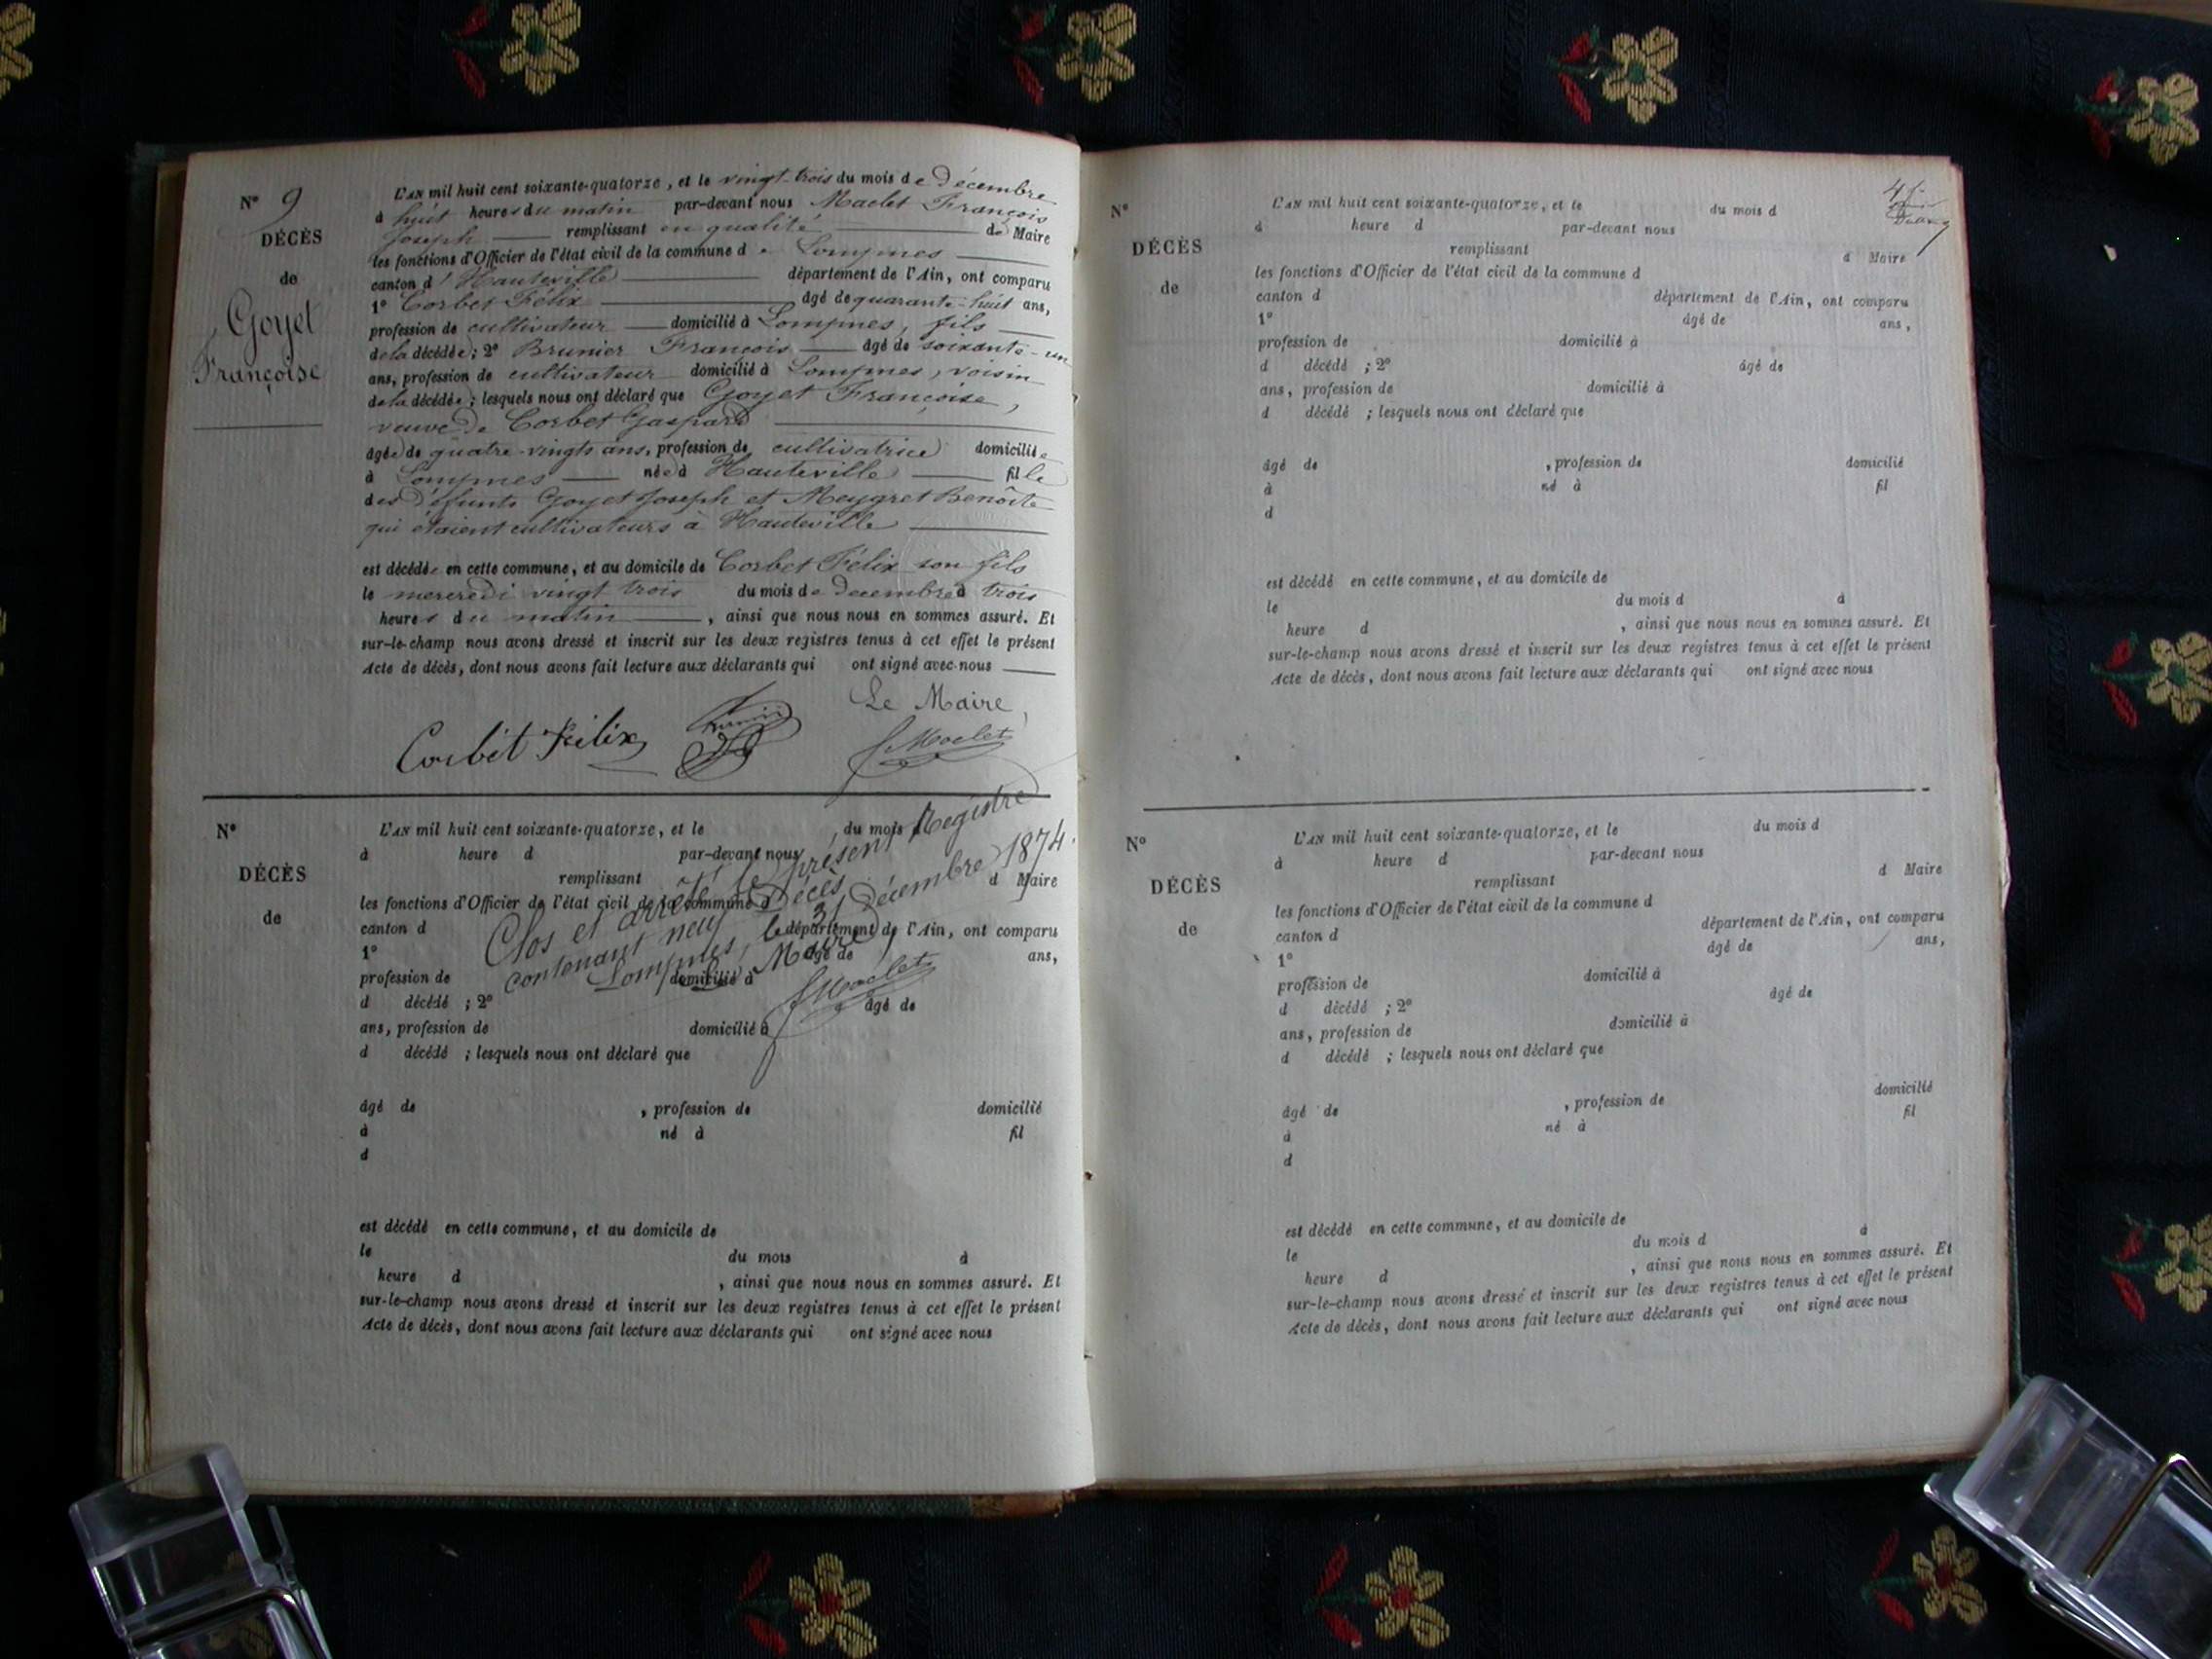 N° 9
DÉCÈS
de
Goyet
Françoise
L'AN mil huit cent soixante-quatorze, et le vingt-trois du mois de Décembre
à huit heures du matin par-devant nous Maclet François
Joseph remplissant en qualité de Maire
les fonctions d'Officier de l'état civil de la commune de Lompnes
canton d'Hauteville département de l'Ain, ont comparu
1° Corbet Félix âgé de quarante-huit ans,
profession de cultivateur domicilié à Lompnes, fils
de la décédée; 2° Brunier François âgé de soixante-un
ans, profession de cultivateur domicilié à Lompnes, voisin
de la décédée; lesquels nous ont déclaré que Goyet Françoise,
veuve de Corbet Gaspard
âgée de quatre-vingts ans, profession de cultivatrice domiciliée
à Lompnes née à Hauteville fille
des défunts Goyet Joseph et Meygret Benoîte
qui étaient cultivateurs à Hauteville
est décédée en cette commune, et au domicile de Corbet Félix son fils
le mercredi vingt trois du mois de Décembre à trois
heures du matin, ainsi que nous nous en sommes assuré. Et
sur-le-champ nous avons dressé et inscrit sur les deux registres tenus à cet effet le présent
Acte de décès, dont nous avons fait lecture aux déclarants qui ont signé avec nous
Le Maire,
Corbet Félix Brunier f Maclet
N°
DÉCÈS
de
L'AN mil huit cent soixante-quatorze, et le du mois
à heure d par-devant nous
remplissant d Maire
les fonctions d'Officier de l'état civil de la commune d
canton d département de l'Ain, ont comparu
1° âgé de ans,
profession de domicilié à
d décédé ; 2° âgé de
ans, profession de domicilié à
d décédé ; lesquels nous ont déclaré que
Clos et arrêté le présent Registre
contenant neuf Décès
Lompnes, le 31 Décembre 1874.
Le Maire,
f Maclet
âgé de , profession de domicilié
à né à fil
d
est décédé en cette commune, et au domicile de
le du mois à
heure d , ainsi que nous nous en sommes assuré. Et
sur-le-champ nous avons dressé et inscrit sur les deux registres tenus à cet effet le présent
Acte de décès, dont nous avons fait lecture aux déclarants qui ont signé avec nous
N°
DÉCÈS
de
L'AN mil huit cent soixante-quatorze, et le du mois d
à heure d par-devant nous
remplissant d Maire
les fonctions d'Officier de l'état civil de la commune d
canton d département de l'Ain, ont comparu
1° âgé de ans,
profession de domicilié à
d décédé ; 2° âgé de
ans, profession de domicilié à
d décédé ; lesquels nous ont déclaré que
âgé de , profession de domicilié
à né à fil
d
est décédé en cette commune, et au domicile de
le du mois d à
heure d , ainsi que nous nous en sommes assuré. Et
sur-le-champ nous avons dressé et inscrit sur les deux registres tenus à cet effet le présent
Acte de décès, dont nous avons fait lecture aux déclarants qui ont signé avec nous
N°
DÉCÈS
de
L'AN mil huit cent soixante-quatorze, et le du mois d
à heure d par-devant nous
remplissant d Maire
les fonctions d'Officier de l'état civil de la commune d
canton d département de l'Ain, ont comparu
1° âgé de ans,
profession de domicilié à
d décédé ; 2° âgé de
ans, profession de domicilié à
d décédé ; lesquels nous ont déclaré que
âgé de , profession de domicilié
à né à fil
d
est décédé en cette commune, et au domicile de
le du mois d à
heure d , ainsi que nous nous en sommes assuré. Et
sur-le-champ nous avons dressé et inscrit sur les deux registres tenus à cet effet le présent
Acte de décès, dont nous avons fait lecture aux déclarants qui ont signé avec nous